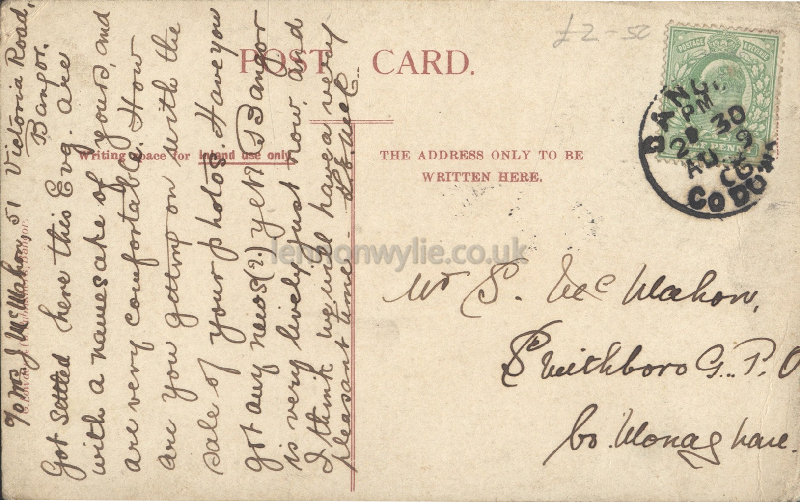 To Mrs J McMahon, 51 Victoria Road,
Bangor.
Got settled here this Evg. are
with a namesake of yours, and
are very comfortable. How
are you getting on with the
sale of your photos. Have you
got any news(?) yet? Bangor
is very lively just now, and
I think we will have a very
pleasant time -
POST CARD.
Writing space for inland use only
THE ADDRESS ONLY TO BE
WRITTEN HERE.
£2-50
POSTAGE REVENUE
HALFPENNY
BANGOR
PM
30
AU 29
06
CO DOWN
Mr S. McMahon,
Smithboro G.P.O
Co. Monaghan.
lennonwylie.co.uk